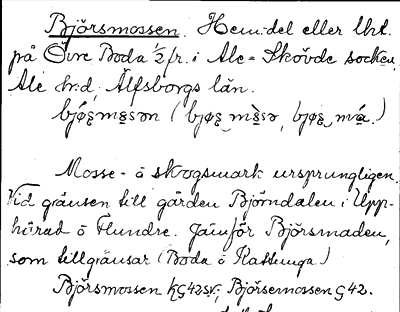 Björsmossen. Hem:del eller lht.
på Övre Boda ½ fr. i Ale-Skövde socken,
Ale h:d, Älfsborgs län.
Mosse- o skogsmark ursprungligen.
Vid gränsen till gården Björndalen i Upp-
härad o Flundre. Jämför Björsmaden,
som tillgränsar (Boda o Rattunga)
Björsmossen KG42sv; Björsemossen G42.